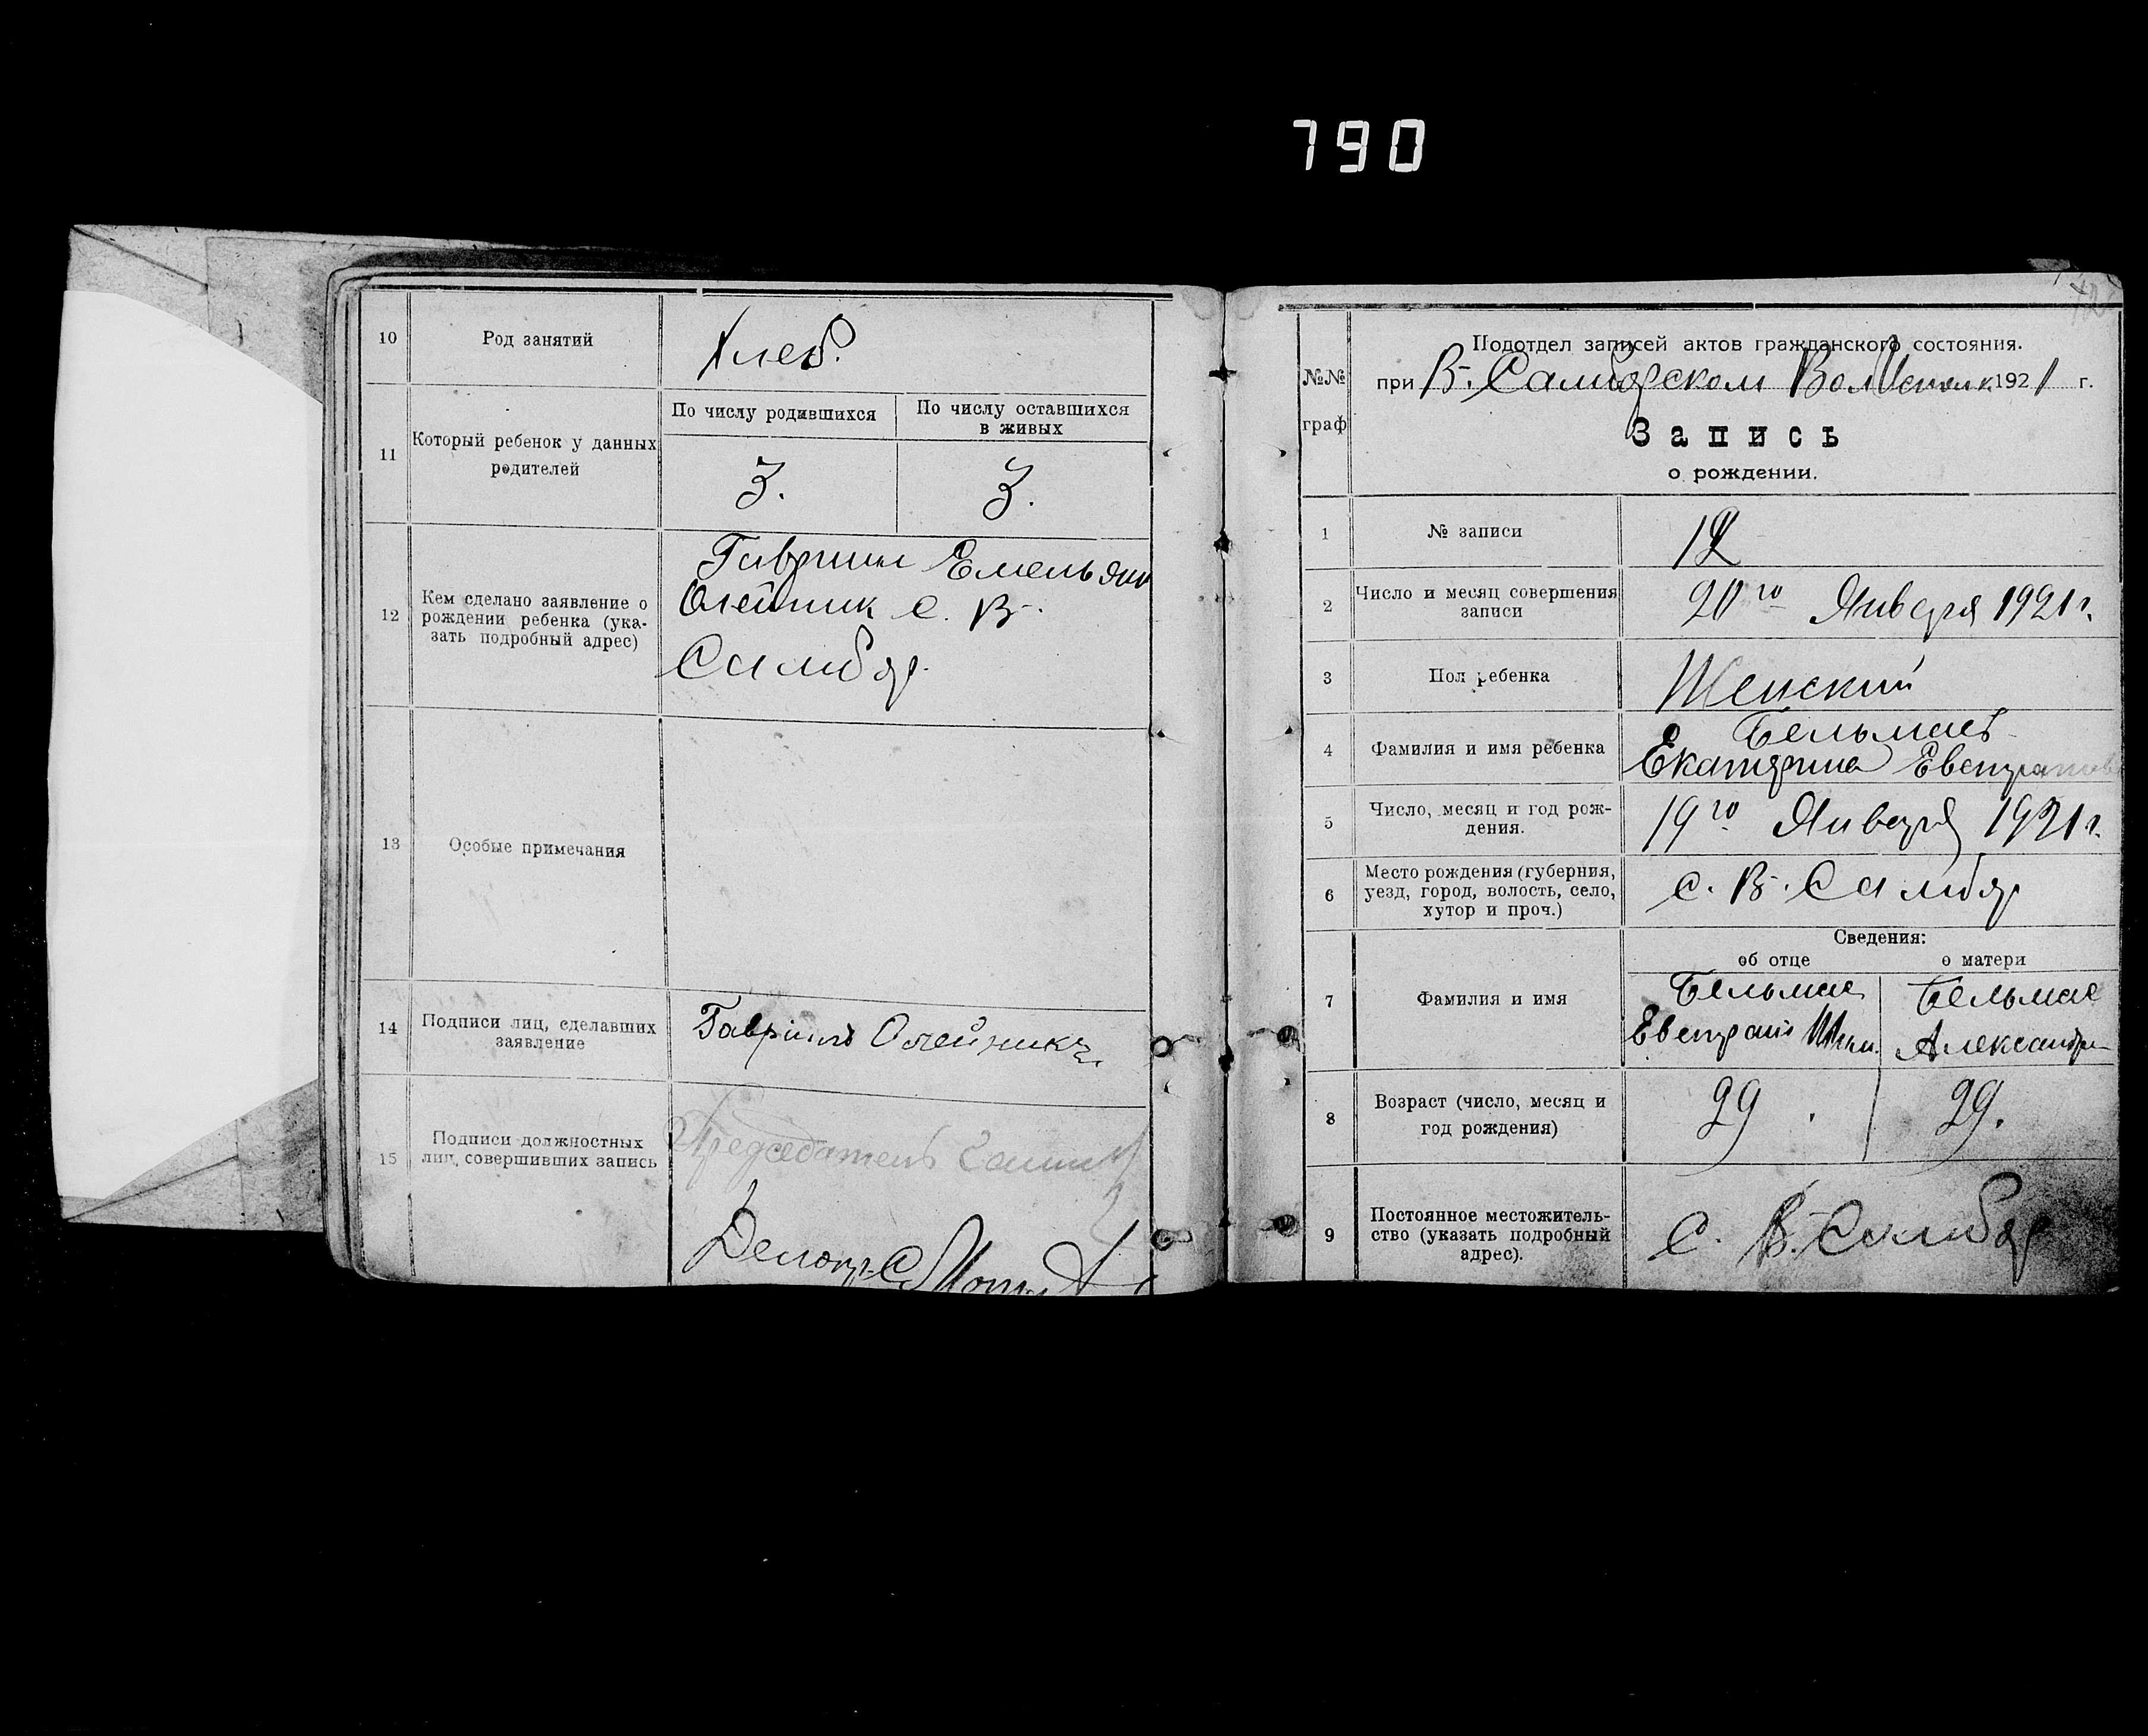 790
10
Род занятий
Хлеб.
11
Который ребенок у данных
родителей
По числу родившихся
По числу оставшихся
в живых
3.
3.
12
Кем сделано заявление о
рождении ребенка (ука-
зать подробный адрес)
Гавриил Емельян
Олейник С. В.
Самбор.
13
Особые примечания
14
Подписи лиц, сделавших
заявление
Гавріилъ Олейникъ
15
Подписи должностных
лиц, совершивших запись
Председатель
Делопр.
№№
граф
Подотдел записей актов гражданского состояния.
при В. Самборском ВолИсполк 1921 г.
Запись
о рождении.
1
№ записи
12
2
Число и месяц совершения
записи
20го Января 1921 г.
3
Пол ребенка
Женский
4
Фамилия и имя ребенка
Екатерина
5
Число, месяц и год рож-
дения.
19го Января 1921 г.
6
Место рождения (губерния,
уезд, город, волость, село,
хутор и проч.)
с. В. Самбор
Сведения:
об отце
о матери
7
Фамилия и имя
Бельмас
Бельмас
Александра
8
Возраст (число, месяц и
год рождения)
29.
29.
9
Постоянное местожитель-
ство (указать подробный
адрес).
С. В. Самбор